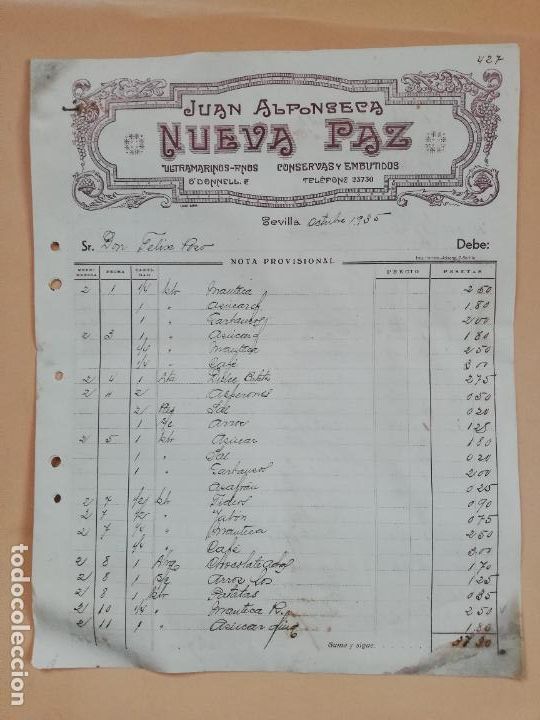 427
JUAN ALFONSECA
NUEVA PAZ
ULTRAMARINOS-FINOS CONSERVAS Y EMBUTIDOS
O'DONNELL, TELÉFONO 23730
Sevilla Octubre 1935
Sr. Don Felix Debe:
NOTA PROVISIONAL
FECHA PRECIO PESETAS
2 1 1/4 kto Mautica 2 50
1 " Azucar 1 80
1 " Garbanzos 2 00
2 3 1 " Azucar 1 80
1/4 " Mautica 2 50
1/4 " Café 3 00
2 4 1 2 75
2 " 2 0 50
2 Sal 0 20
1 Arroz 1 25
2 5 1 kto Azucar 1 80
1 " Sal 0 20
1 " Garbanzos 2 00
Azafran 0 25
2 7 1/2 kto Fideos 0 90
2 7 1/2 " Jabon 0 75
2 7 1/4 " Mautica 2 50
1/4 " Café 3 00
2 8 1 Chocolate 1 70
2 8 1 Arroz 1 25
2 8 1 kto Patatas 0 35
2 10 1/4 " Mautica 2 50
2 11 1 " Azucar 1 80
Suma y sigue 37 30
todocoleccion